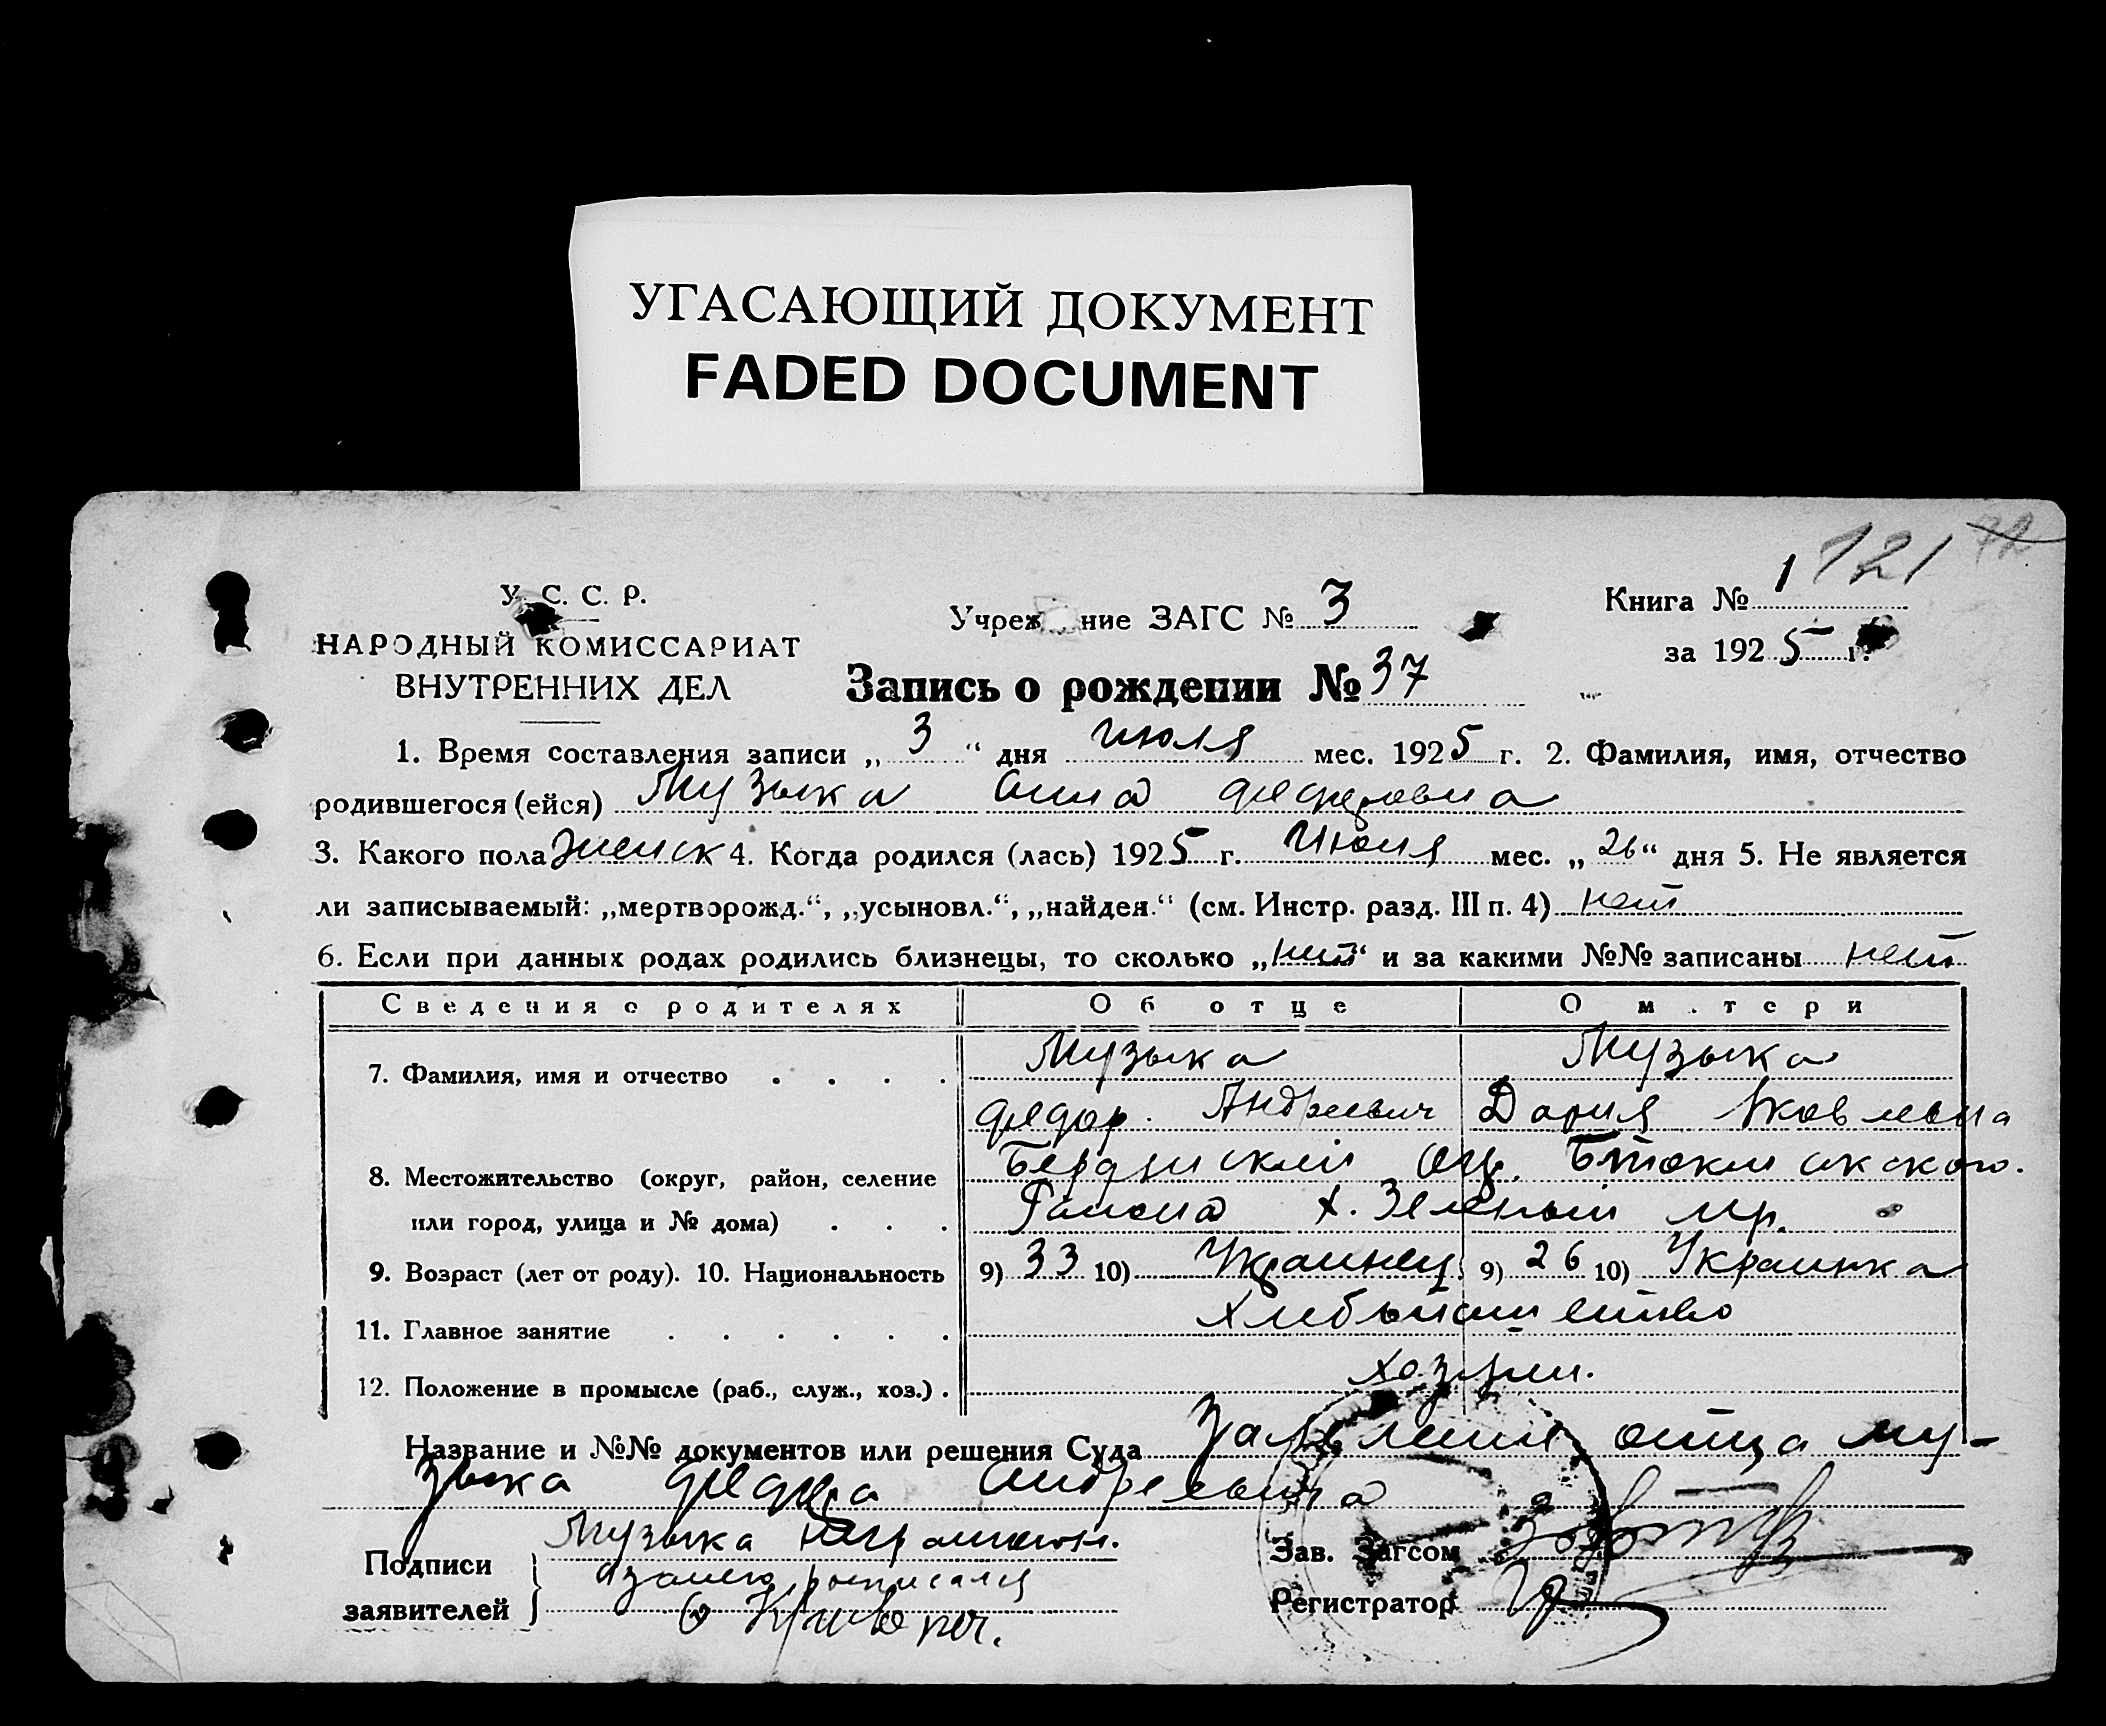 УГАСАЮЩИЙ ДОКУМЕНТ
FADED DOCUMENT
1 121 72
У. С. С. Р.
НАРОДНЫЙ КОМИССАРИАТ
ВНУТРЕННИХ ДЕЛ
Учреж ние ЗАГС № 3
Книга №
за 1925 г.
Запись о рождении № 37
1. Время составления записи „ 3 “ дня июля мес. 1925 г. 2. Фамилия, имя, отчество
родившегося (ейся) Музыка Анна Федоровна
3. Какого пола женск 4. Когда родился (лась) 1925 г. Июня мес. „ 26 “ дня 5. Не является
ли записываемый: „мертворожд.“, „усыновл.“, „найден.“ (см. Инстр. разд. III п. 4) нет
6. Если при данных родах родились близнецы, то сколько „нет“ и за какими №№ записаны нет
Сведения о родителях Об отце О м . тери
7. Фамилия, имя и отчество . . . . Музыка Музыка
Федор. Андреевич Дария Яковлевна
8. Местожительство (округ, район, селение Бердянский
или город, улица и № дома) . . . Района х. Зеленый
9. Возраст (лет от роду). 10. Национальность 9) 33 10) Украинец 9) 26 10) Украинка
11. Главное занятие . . . . . .
12. Положение в промысле (раб., служ., хоз.) . хозяин.
Название и №№ документов или решения Суда Заявление отца Му-
зыка Федора Андреевича
Подписи
заявителей
Музыка неграмотн.
а за него росписался
Зав. Загсом
Регистратор